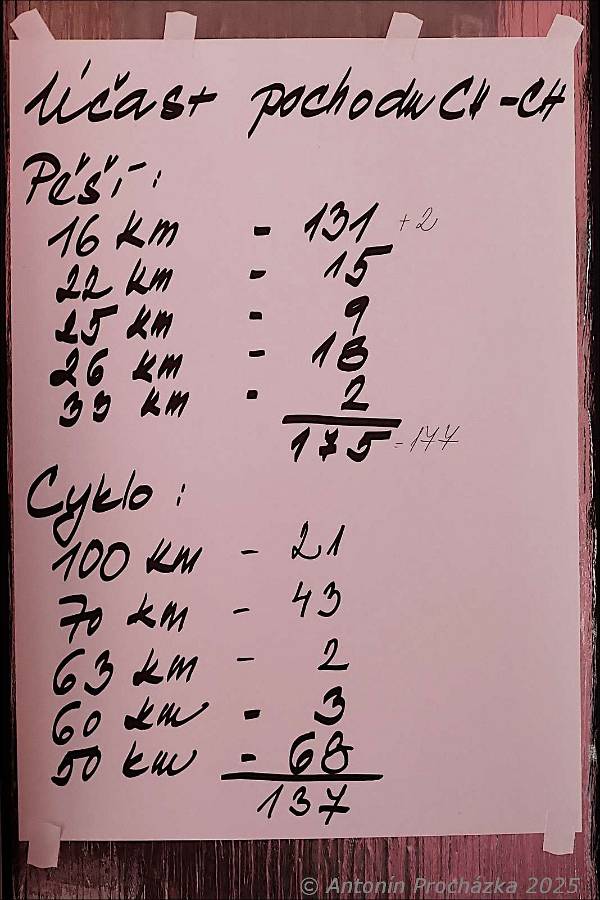 Účast pochodu CH-CH
Pěší:
16 km - 131 +2
22 km - 15
25 km - 9
26 km - 18
33 km - 2
175 = 177
Cyklo:
100 km - 21
70 km - 43
63 km - 2
60 km - 3
50 km - 68
137
© Antonín Procházka 2025